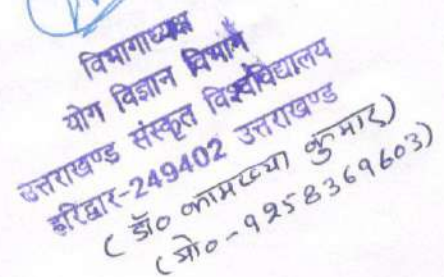 विभागाध्यक्ष
योग विज्ञान विभाग
उत्तराखण्ड संस्कृत विश्वविद्यालय
हरिद्वार-249402 उत्तराखण्ड
(डॉ० कामाख्या कुमार)
(मो०-9258369603)